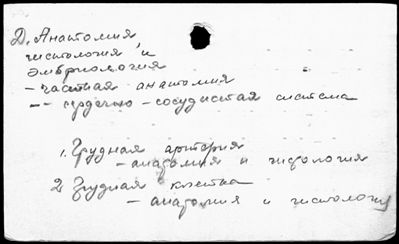 Д. Анатомия
гистология и
эмбриология
- частная анатомия
-- сердечно-сосудистая система
1. Грудная артерия
- анатомия и гистология
2 Грудная клетка
- анатомия и гистология